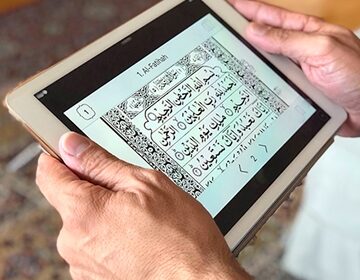 1. Al-Fatihah
بِسْمِ اللَّهِ الرَّحْمَٰنِ الرَّحِيمِ
الْحَمْدُ لِلَّهِ رَبِّ الْعَالَمِينَ الرَّحْمَٰنِ
الرَّحِيمِ مَالِكِ يَوْمِ الدِّينِ
إِيَّاكَ نَعْبُدُ وَإِيَّاكَ نَسْتَعِينُ
< 2 >